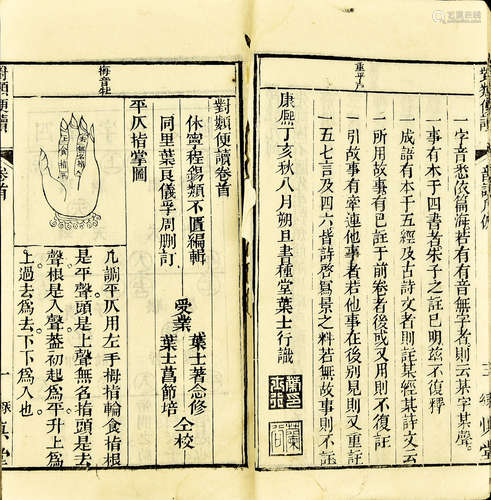 一字音悉依篇海若有有音無字者則云某字某聲
一事有本于四書者朱子之註已明茲不復釋
一成語有本于五經及古詩文者則註某經某詩文云
一所用故事有已註于前卷者後或又用則不復註
一引故事有牽連他事者若他事在後別見則又重註
一五七言及四六皆詩啓寫景之料若無故事則不註
康熙丁亥秋八月朔旦書種堂葉士行識
對類便讀卷首
休寧程錫類不匱編輯
同里葉良儀孚周刪訂
受業
葉士著念修
葉士菖節培
仝校
平仄指掌圖
凡調平仄用左手拇指輪食指根
是平聲頭是上聲無名指頭是去
聲根是入聲蓋初起爲平升上爲
上過去爲去下下爲入也
對類便讀
卷首
一